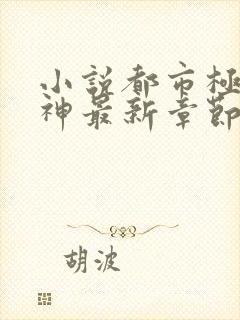 小説都市極
神最新章節
胡波